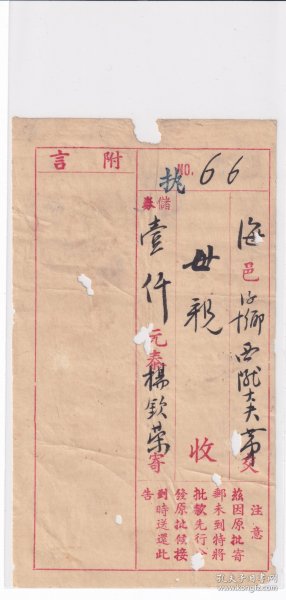 附言
NO. 66
批
海邑
西隴
母親
收
儲券壹仟元
泰楊欽榮寄
注意
茲因原批寄
郵未到特將
批款先行分
發原批候接
到時送還此
告
孔夫子旧书网